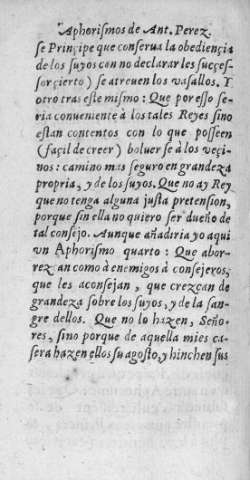 Aphorismos de Ant. Perez.
se Principe que conserua la obediençia
de los suyos con no declarar les succes-
sor çierto) se atreuen los vasallos. Y
otro tras este mismo : Que por esso se-
ria conueniente à los tales Reyes sino
estan contentos con lo que posseen
(façil de creer) boluer se à los veçi-
nos : camino mas seguro en grandeza
propria, y de los suyos. Que no ay Rey
que no tenga alguna justa pretension,
porque sin ella no quiero ser dueño de
tal consejo. Aunque añadiria yo aqui
vn Aphorismo quarto : Que abor-
rezcan como à enemigos à consejeros,
que les aconsejan, que crezcan de
grandeza sobre los suyos, y de la san-
gre dellos. Que no lo hazen, Seño-
res, sino porque de aquella mies ca-
sera hazen ellos su agosto, y hinchen sus